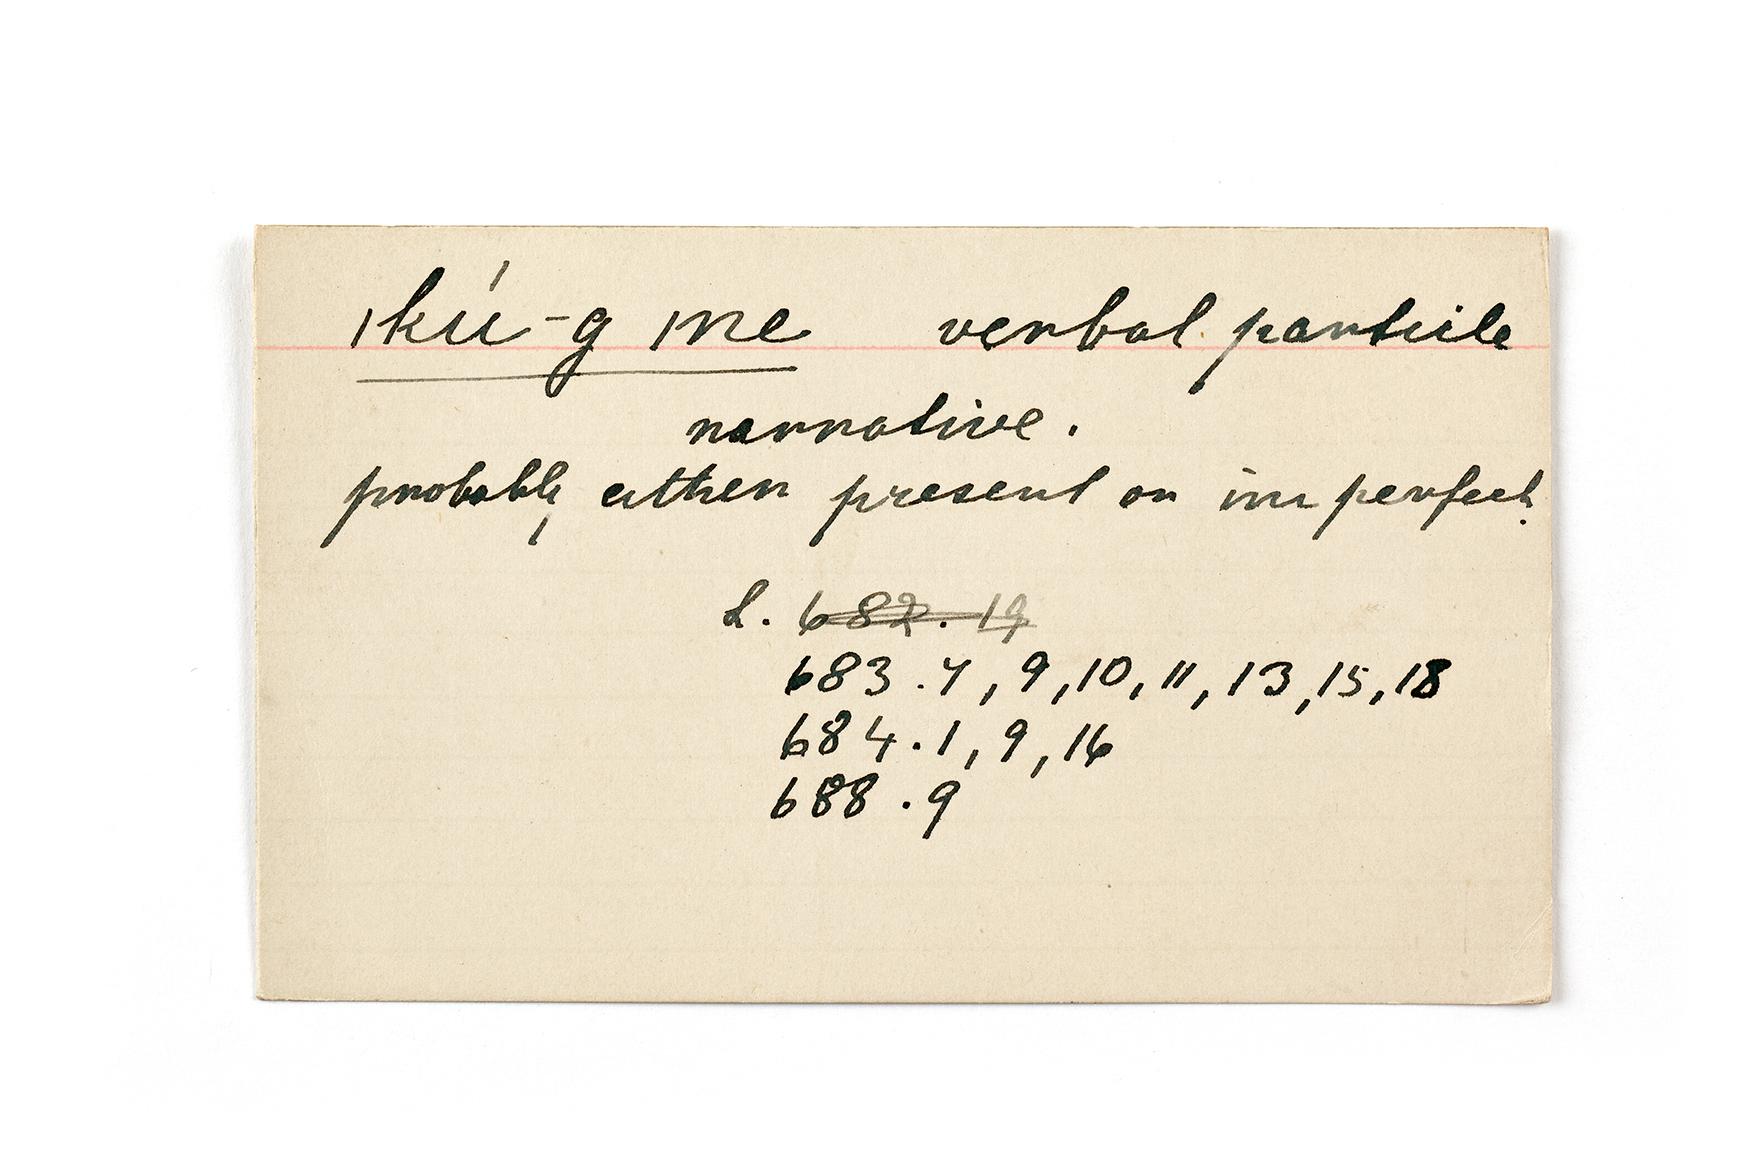 ıkú-g ıne verbal particle
narrative.
probably either present or imperfect.
L. 682.19
683.4, 9, 10, 11, 13, 15, 18
684.1, 9, 16
688.9